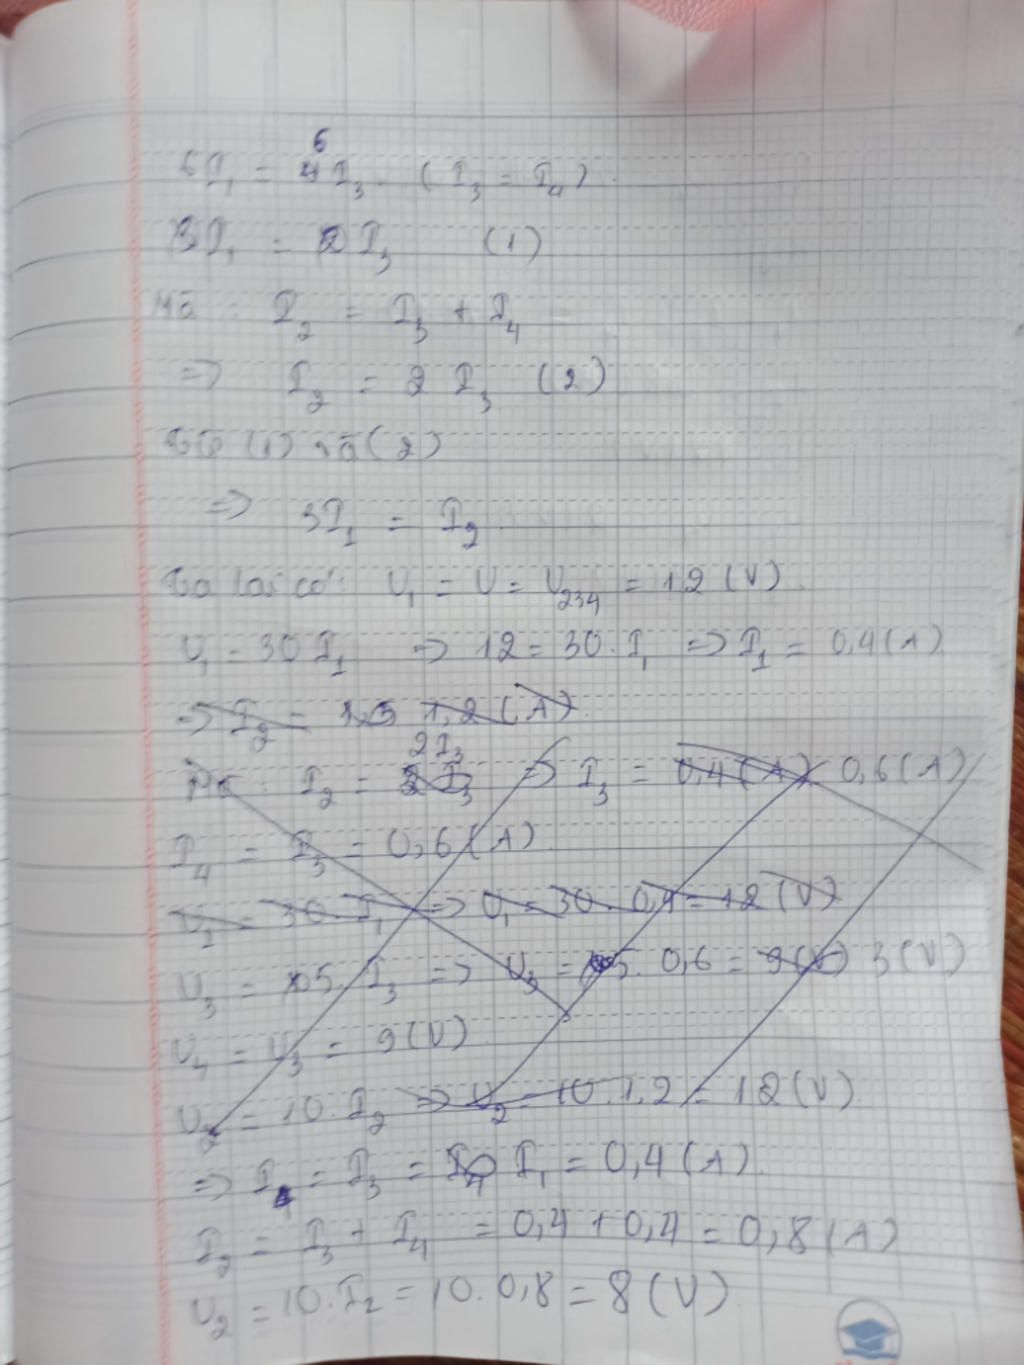 6I₁ = 6I₃ (I₃ = I₄)
I₁ = I₃ (1)
Mà: I₂ = I₃ + I₄
=> I₂ = 2 I₃ (2)
Từ (1) và (2)
=> 3I₁ = I₂
Ta lại có: U₁ = U = U₂₃₄ = 12 (V)
U₁ = 30 I₁ => 12 = 30. I₁ => I₁ = 0,4 (A)
=> I₂ = 1,2 (A)
Mà: I₂ = 2I₃ => I₃ = 0,4 (A) 0,6 (A)
I₄ = I₃ = 0,6 (A)
U₁ = 30 I₁ => U₁ = 30. 0,4 = 12 (V)
U₃ = 5. I₃ => U₃ = 5. 0,6 = 9 (V) 3 (V)
U₄ = U₃ = 9 (V)
U₂ = 10. I₂ => U₂ = 10. 1,2 = 12 (V)
=> I₄ = I₃ = I₁ = 0,4 (A)
I₂ = I₃ + I₄ = 0,4 + 0,4 = 0,8 (A)
U₂ = 10. I₂ = 10. 0,8 = 8 (V)